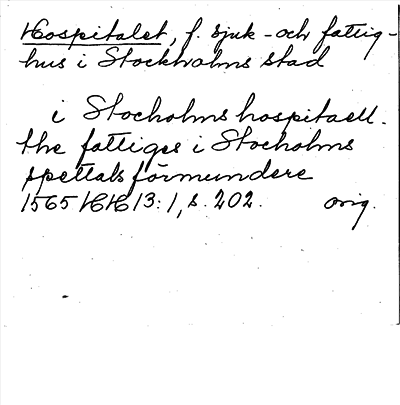 Hospitalet, f. sjuk- och fattig-
hus i Stockholms stad
i Stocholms hospitaell.
the fattiges i Stocholms
spettals förmundere
1565 HH 13:1, s. 202. orig.